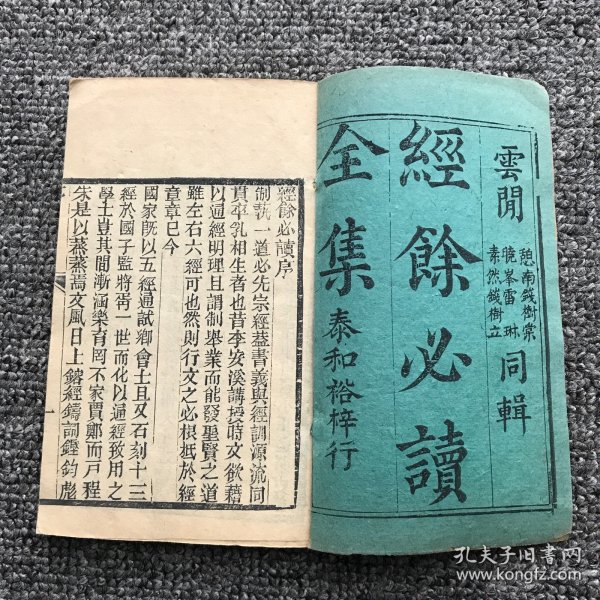 雲間
憩南錢樹棠
曉峯雷琳
素然錢樹立
同輯
經餘必讀
全集
泰和裕梓行
經餘必讀序
制執一道必先宗經蓋書義與經訓源流同
貫孳乳相生者也昔李安溪講授時文欲藉
以通經明理且謂制舉業而能發聖賢之道
雖左右六經可也然則行文之必根柢於經
章章已今
國家既以五經通試鄉會士且又石刻十三
經於國子監將胥一世而化以通經致用之
學士豈其間漸涵樂育罔不家賈鄭而戶程
朱是以蒸蒸焉文風日上鎔經鑄詞鏗鈞彪
孔夫子旧书网
www.kongfz.com